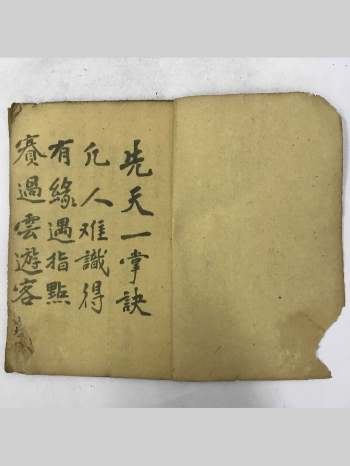 先天一掌訣
凡人难識得
有緣遇指點
賽過雲遊客